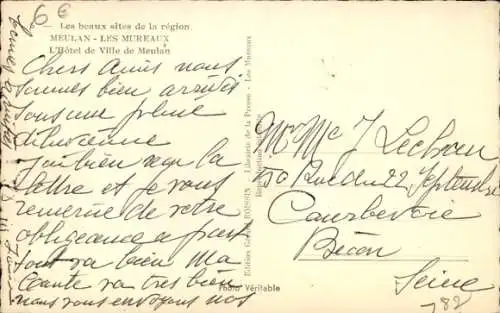 6€
Les beaux sites de la région
MEULAN - LES MUREAUX
L'Hôtel de Ville de Meulan
Chers Amis nous
sommes bien arrivés
sous une pluie
diluvienne
J'ai bien reçu la
lettre et je vous
remercie de votre
obligeance a part
tout va bien Ma
santé va très bien
nous vous envoyons nos
Librairie de la Presse - Les Mureaux
Photo Véritable
Mr Mme J
50 Rue du 22 Septembre
Courbevoie
Bécon
Seine
782